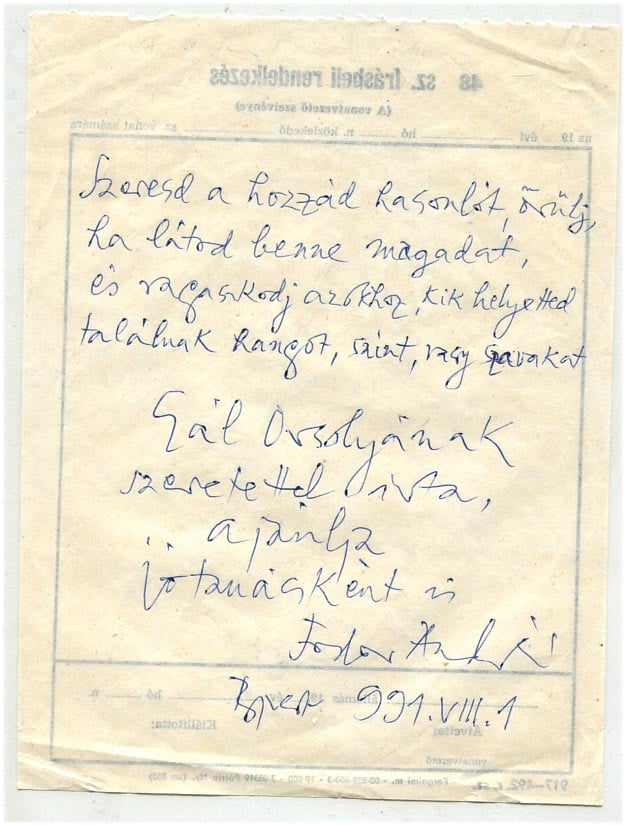 48 sz. Írásbeli rendelkezés
(A vonatvezető szelvénye)
az 19 ..... évi ..... hó ..... n. közlekedő ..... sz. vonat számára
Szeresd a hozzád hasonlót, örülj,
ha látod benne magadat,
és ragaskodj azokhoz, kik helyetted
találnak hangot, színt, vagy szavakat
Gál Orsolyának
szeretettel írta,
ajánlja
jótanácsként is
Fodor András
állomás, 19 ..... év ..... hó ..... n.
Bpest 991.VIII.1
Átvette: Kiállította:
vonatvezető
917-492. r. sz.